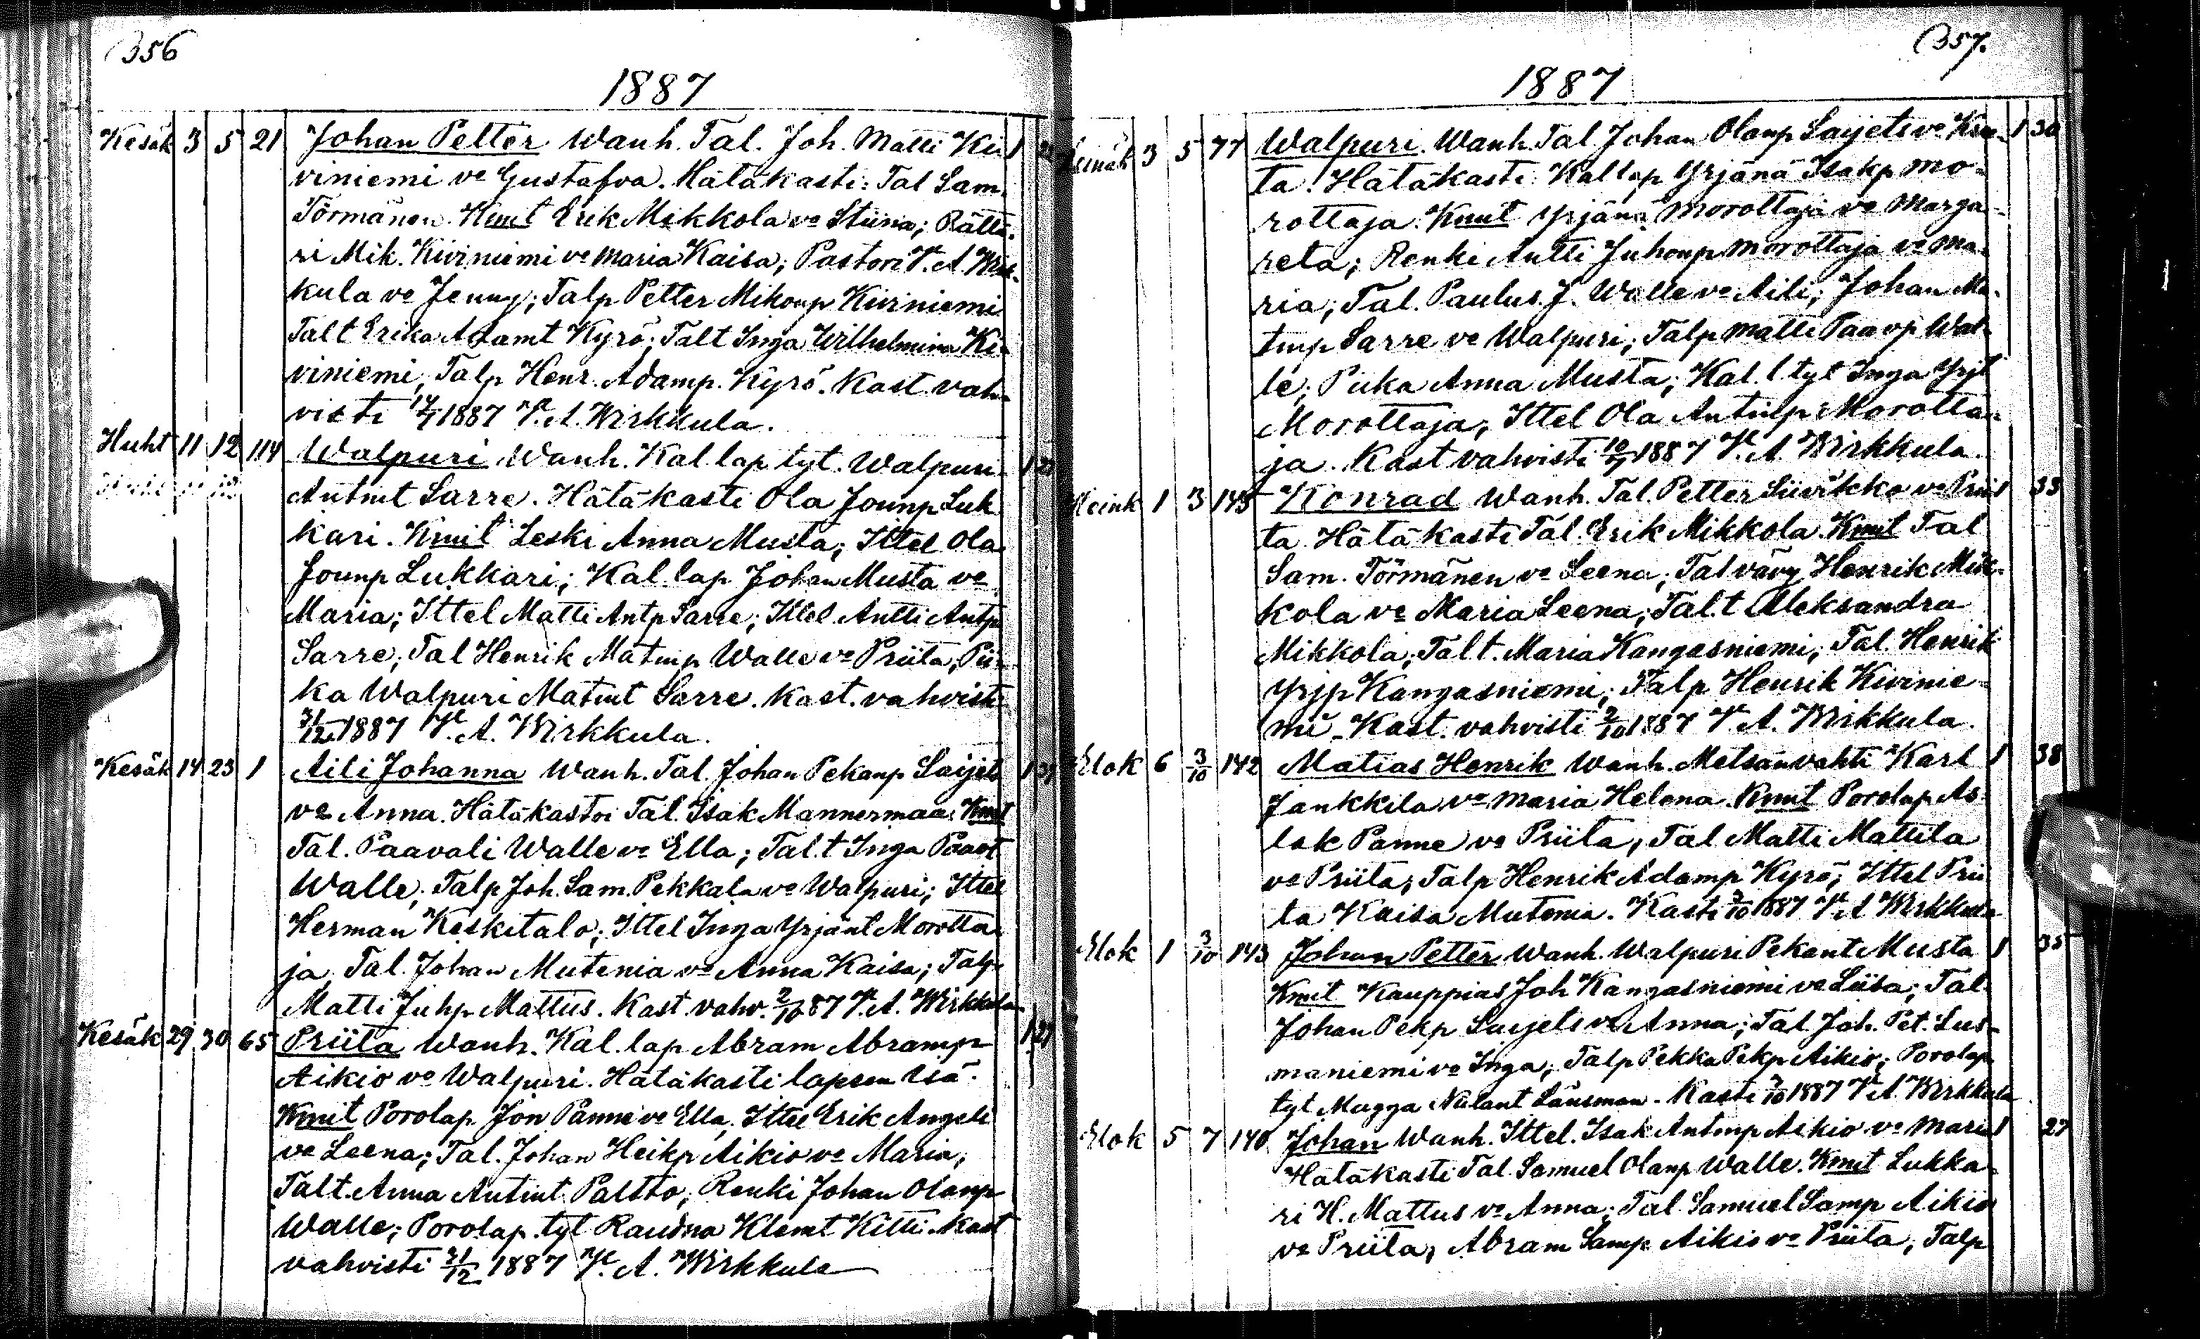 356
1887
Kesäk 3 5 21 Johan Petter Wanh. Tal. Joh. Matti Ki 1
viniemi vo Gustafva. Hätäkasti: Tal Sam.
Törmänen. Kmit Erik Mikkola vo Stiina; Rätta-
ri Mik. Kiviniemi vo Maria Kaisa; Pastori V. A. Wirk-
kula vo Jenny; Talp Petter Mikonp Kiviniemi
Talt Erika Adamt Kyrö; Talt Inga Wilhelmina Ki-
viniemi, Talp Henr. Adamp. Kyrö. Kast. vah-
visti 1887 V. A. Wirkkula.
Huht 11 12 114 Walpuri Wanh. Kal lap tyt. Walpuri 1
Antint Sarre. Hätäkasti Ola Jounp Luk
kari. Kmit Leski Anna Musta; Ittel Ola
Jounp Lukkari; Kal lap Johan Musta vo
Maria; Ittel Matti Antp Sarre; Ittel Antti Antp
Sarre; Tal Henrik Matinp Walle vo Priita; Pii-
ka Walpuri Matint Sarre. Kast. vahvisti
31/12 1887 V. A. Wirkkula.
Kesäk 14 23 1 Aili Johanna Wanh. Tal. Johan Pekanp Saijets 1
vo Anna. Hätäkastoi Tal. Isak Mannermaa. Kmit
Tal. Paavali Walle vo Ella; Tal.t Inga Paavt
Walle; Talp Joh. Sam. Pekkala vo Walpuri; Ittel
Herman Keskitalo; Ittel Inga Yrjänt Morotta-
ja. Tal. Johan Mutenia vo Anna Kaisa; Talp
Matti Juhp Mattus. Kast vahv. 2/10 87 V. A. Wirkkula
Kesäk 29 30 65 Priita Wanh. Kal. lap Abram Abramp 1 27
Aikio vo Walpuri. Hätäkasti lapsen Isä.
Kmit Porolap Jon Panne vo Ella, Ittel Erik Angeli
vo Leena; Tal. Johan Heikp Aikio vo Maria;
Talt. Anna Antint Paltto; Renki Johan Olanp
Walle; Porolap. tyt Raudna Klemt Kitti. Kast
vahvisti 31/12 1887 V. A. Wirkkula
357.
1887
Heinäk 3 5 77 Walpuri. Wanh. Tal Johan Olanp Saijets vo Kre- 1 30
ta. Hätäkasti Kal lap Yrjänä Isakp Mo-
rottaja. Kmit Yrjänä Morottaja vo Marga-
reta; Renki Antti Juhonp Morottaja vo Ma-
ria; Tal. Paulus J. Walle vo Aili; Johan Ma-
tinp Sarre vo Walpuri; Talp Matti Paavp Wal-
le; Piika Anna Musta; Kal. l tyt Inga Yrjt
Morottaja; Ittel Ola Antinp Morotta-
ja. Kast vahvisti 1887 V. A. Wirkkula.
Heink 1 3 145 Konrad Wanh. Tal. Petter Siivikko vo Prii 1 33
ta. Hätäkasti Tal. Erik Mikkola. Kmit Tal
Sam. Törmänen vo Leena; Talvävy Henrik Mik-
kola vo Maria Leena; Tal.t Aleksandra
Mikkola; Tal t. Maria Kangasniemi; Tal. Henrik
Yrjp Kangasniemi; Talp Henrik Kivinie-
mi. Kast. vahvisti 2/10 1887 V. A. Wirkkula.
Elok 6 3/10 142 Matias Henrik Wanh. Metsänvahti Karl 1 38
Jankkila vo Maria Helena. Kmit Porolap As-
lak Panne vo Priita; Tal Matti Mattila
vo Priita; Talp Henrik Adamp Kyrö; Ittel Prii
ta Kaisa Mutenia. Kasti 3/10 1887 V. A. Wirkkula
Elok 1 3/10 143 Johan Petter Wanh. Walpuri Pekant Musta 1 35
Kmit Kauppias Joh Kangasniemi vo Liisa; Tal.
Johan Pekp Saijets vo Anna; Tal. Joh. Pet. Lus-
maniemi vo Inga; Talp Pekka Pekp Aikio; Porolap
tyt Magga Länsman. Kasti 1887 V. A. Wirkkula
Elok 5 7 140 Johan Wanh. Ittel. Isak Antinp Aikio vo Maria 1 27
Hätäkasti Tal Samuel Olanp Walle. Kmit Lukka-
ri H. Mattus vo Anna; Tal. Samuel Samp Aikio
vo Priita; Abram Samp Aikio vo Priita; Talp